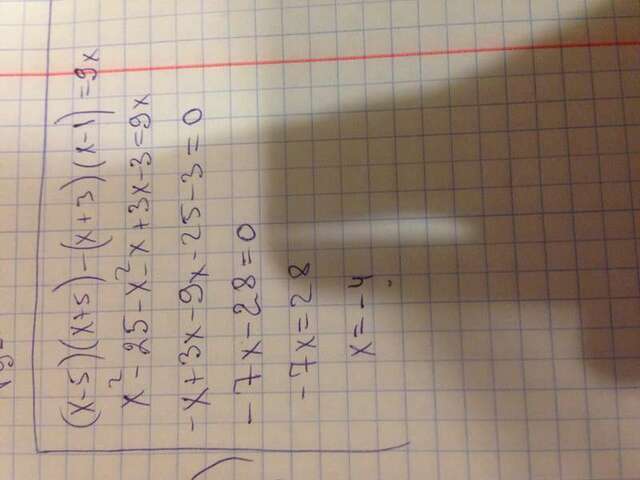 (x-5)(x+5)-(x+3)(x-1)=9x
x²-25-x²-x+3x-3=9x
-x+3x-9x-25-3=0
-7x-28=0
-7x=28
x=-4